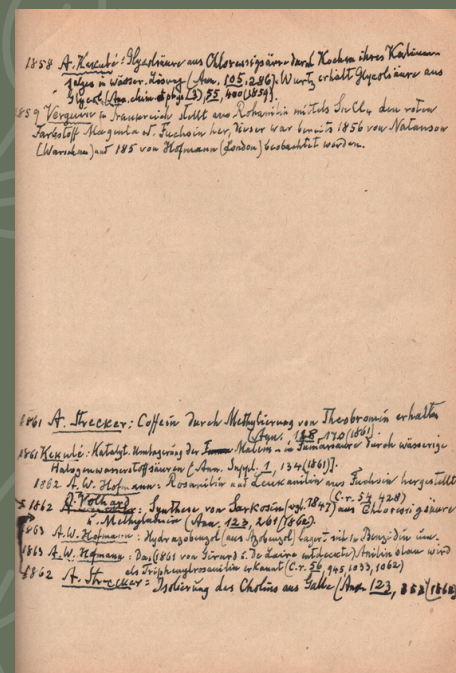 1858 A. Kekulé: Glycolsäure aus Chloressigsäure durch Kochen ihres Kalium-
salzes in wässer. Lösung (Ann. 105, 286). Wurtz erhält Glycolsäure aus
Glycol (Ann. chim et phys (3), 55, 400 (1859).
1859 Verguin in Frankreich stellt aus Rohanilin mittels SnCl4 den roten
Farbstoff Magenta od. Fuchsin her, dieser war bereits 1856 von Natanson
(Warschau) und 185 von Hofmann (London) beobachtet worden.
1861 A. Strecker: Coffein durch Methylierung von Theobromin erhalten
(Ann. 118, 170 (1861).
1861 Kekulé: Katalyt. Umlagerung der Malein- in Fumarsäure durch wässerige
Halogenwasserstoffsäuren (Ann. Suppl. 1, 134 (1861)].
1862 A. W. Hofmann: Rosanilin und Leukanilin aus Fuchsin hergestellt
(C.r. 54, 428)
1862 J. Volhard: Synthese von Sarkosin (vgl. 1847) aus Chloressigsäure
u. Methylamin (Ann. 123, 261 (1862).
1863 A.W. Hofmann: Hydrazobenzol (aus Azobenzol) lagert sich in Benzidin um.
1863 A.W. Hofmann: Das (1861 von Girard u. De Laire entdeckte) Anilinblau wird
als Triphenylrosanilin erkannt (C.r. 56, 945, 1033, 1062)
1862 A. Strecker: Isolierung des Cholins aus Galle (Ann. 123, 353 (1862)